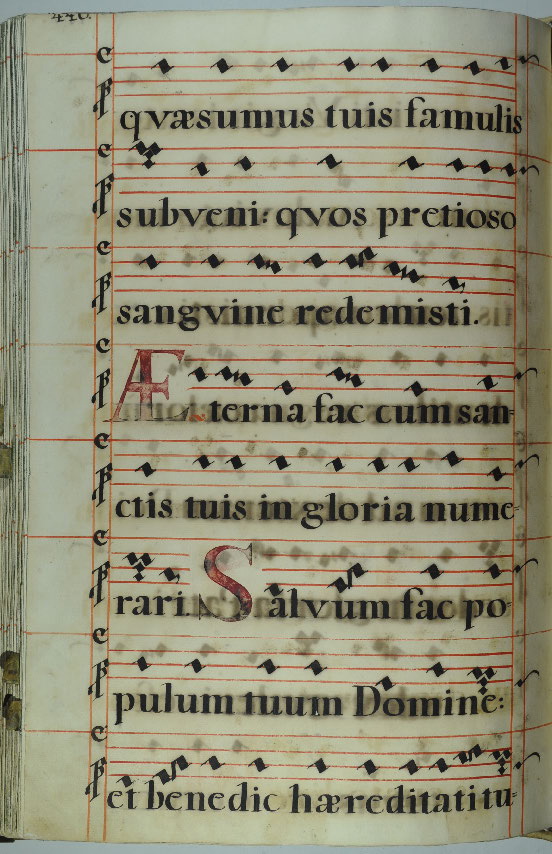 quæsumus tuis famulis
subveni: quos pretioso
sangvine redemisti.
Æterna fac cum san-
ctis tuis in gloria nume-
rari. Salvum fac po-
pulum tuum Domine:
et benedic hæreditati tu-